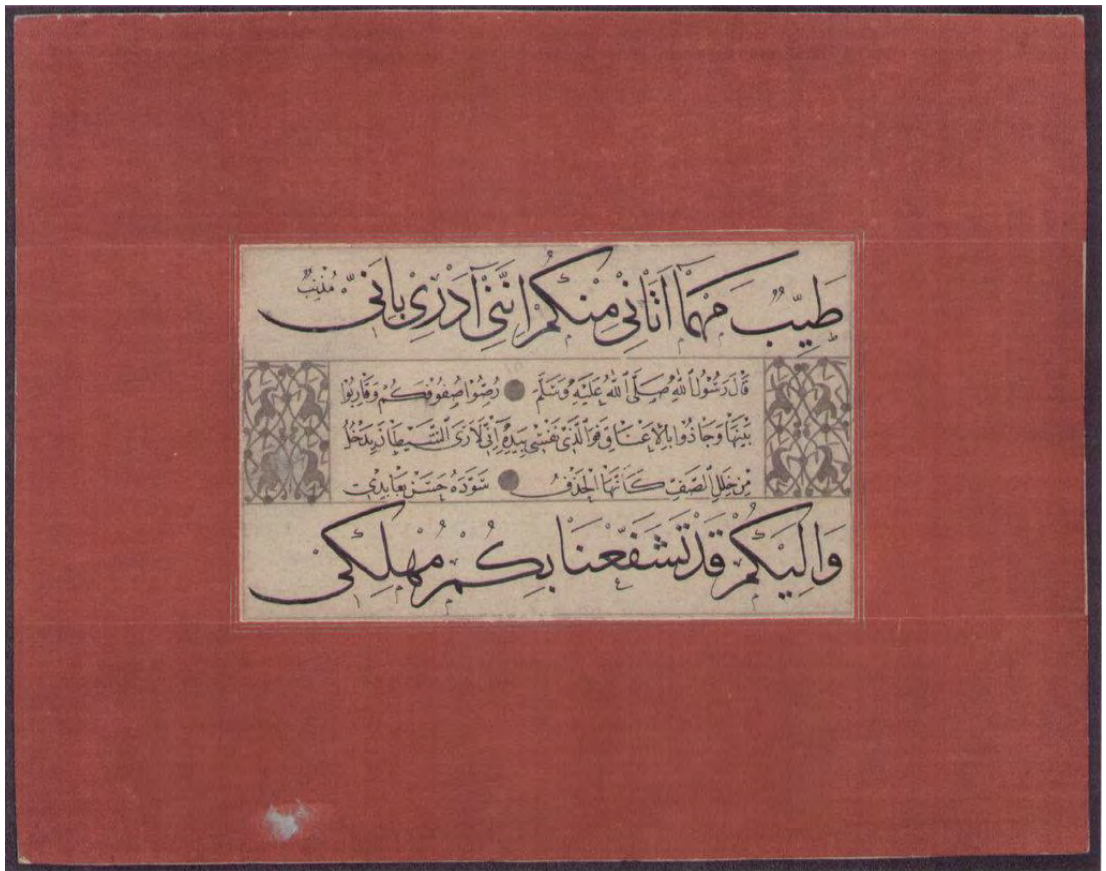 طَيِّبٌ مَهْمَا أَتَانِي مِنْكُمُ انَّنِي أَدْرِي بِأَنِّي مُذْنِبٌ
قَالَ رَسُولُ اللهِ صَلَّى اللهُ عَلَيْهِ وَسَلَّمَ رُصُّوا صُفُوفَكُمْ وَقَارِبُوا
بَيْنَهَا وَحَاذُوا بِالْأَعْنَاقِ فَوَالَّذِي نَفْسِي بِيَدِهِ إِنِّي لَأَرَى الشَّيْطَانَ يَدْخُلُ
مِنْ خَلَلِ الصَّفِّ كَأَنَّهَا الْحَذَفُ سَوَّدَهُ حَسَنْ
وَإِلَيْكُمْ قَدْ تَشَفَّعْنَا بِكُمْ